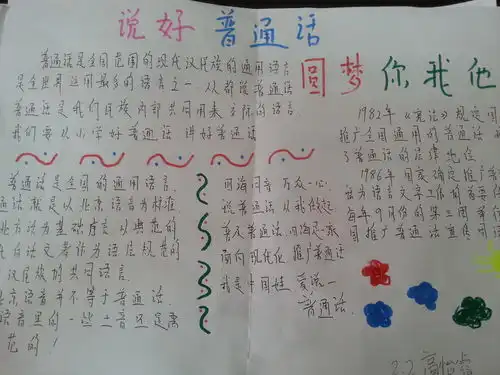 说好普通话
圆梦你我他
普通话是全国范围的现代汉民族的通用语言
是全世界运用最多的语言之一
普通话是我们民族内部共同用来交际的语言.
我们要从小学好普通话 讲好普通话
普通话是全国的通用语言.
通话就是以北京语言为标准
北方话为基础方言以典范的
代白话文著作为语法规范的
汉民族的共同语言.
北京语音并不等于普通话.
语音里的一些土音还是需
范的!
四海同音 万众一心
说普通话 从我做起
普及普通话 四海是一家
面向现代化 推广普通话
我是中国娃 爱说一
普通话.
1982年《宪法》规定国
推广全国通用的普通话
了普通话的法律地位
1986年 国家确定推广普
为语言文字工作的首要
每年9月份的第三周
国推广普通话宣传周活
2.2 高怡霜